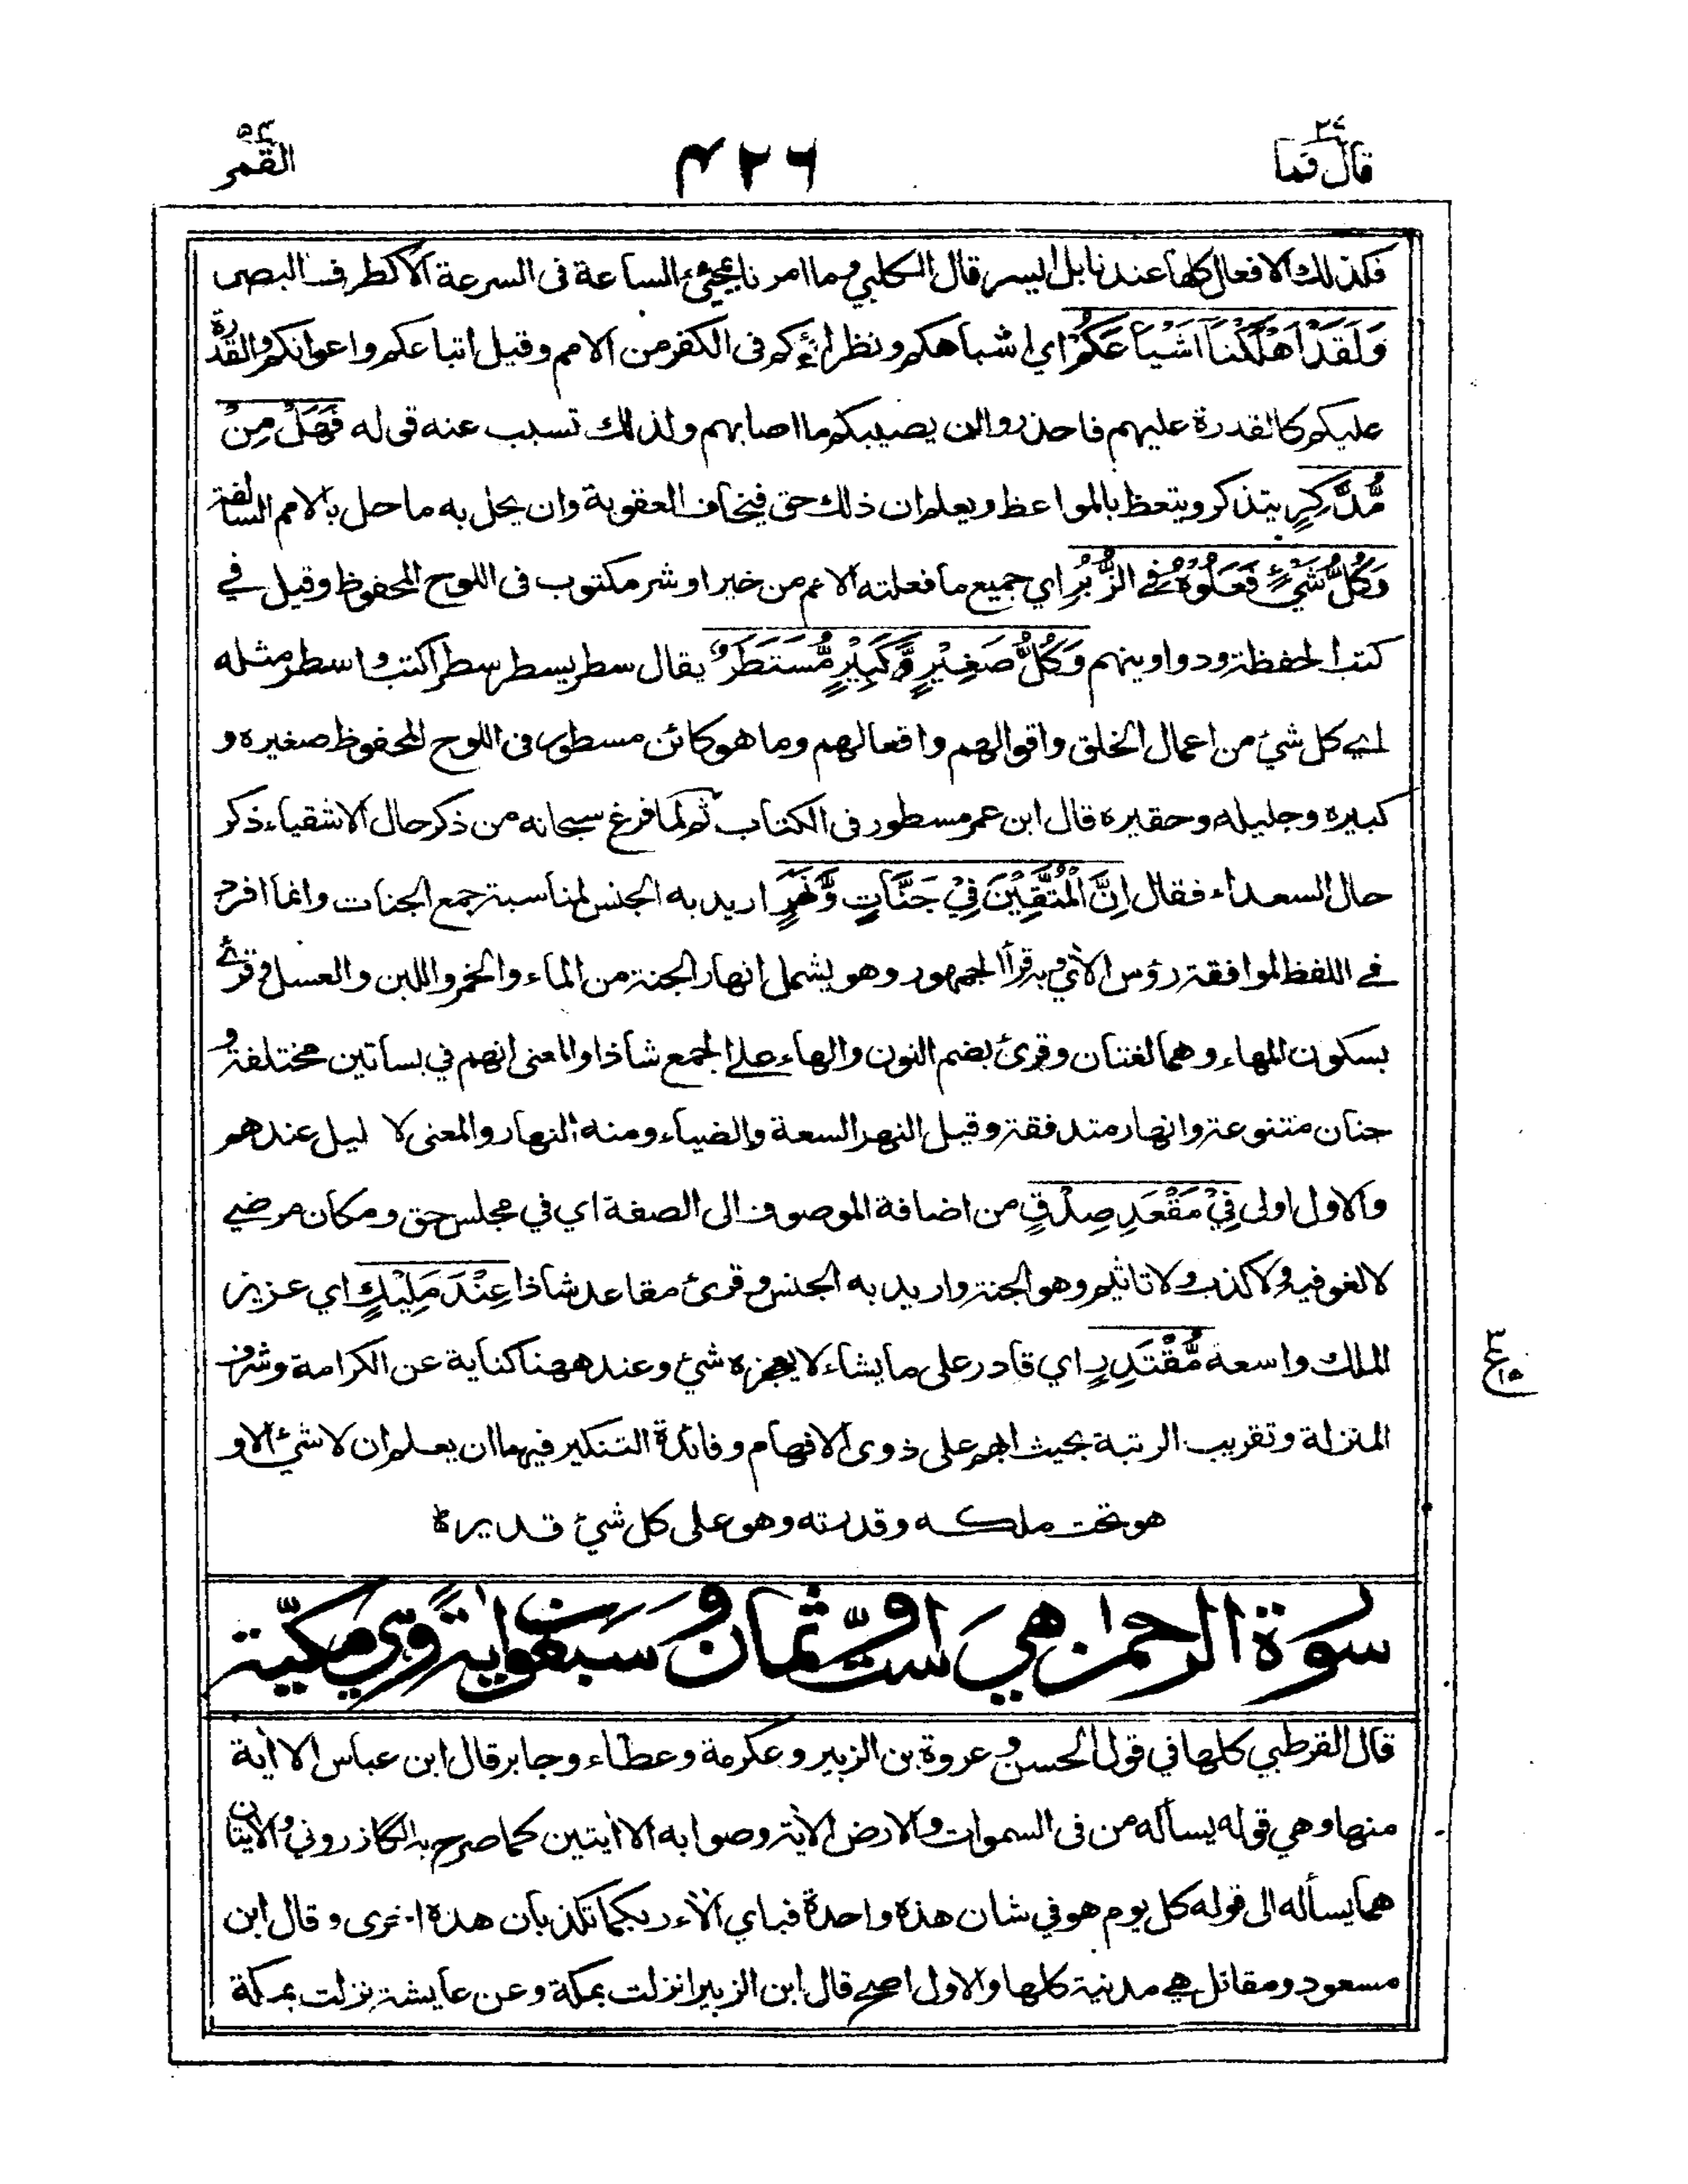 قال فما ٢٧
٤٢٦
القمر ٥٤
فكذلك الافعال كلها عندنا بل ايسر قال الكلبي وما امرنا بمجيئ الساعة فى السرعة الا كطرف البصر
وَلَقَدْ اَهْلَكْنَا اَشْيَاعَكُمْ اي اشباهكم ونظراءكم فى الكفر من الامم وقيل اتباعكم واعوانكم والقدرة
عليكم كالقدرة عليهم فاحذروا ان يصيبكم ما اصابهم ولذلك تسبب عنه قوله فَهَلْ مِنْ
مُّدَّكِرٍ يتذكر ويتعظ بالمواعظ ويعلم ان ذلك حق فيخاف العقوبة وان يحل به ما حل بالامم السالفة
وَكُلُّ شَيْءٍ فَعَلُوْهُ فِي الزُّبُرِ اي جميع ما فعلته الامم من خير او شر مكتوب فى اللوح المحفوظ وقيل في
كتب الحفظة ودواوينهم وَكُلُّ صَغِيْرٍ وَّكَبِيْرٍ مُّسْتَطَرٌ يقال سطر يسطر سطرا كتب واسطر مثله
اي كل شيء من اعمال الخلق واقوالهم وافعالهم وما هو كائن مسطور فى اللوح المحفوظ صغيره و
كبيره وجليله وحقيره قال ابن عمر مسطور فى الكتاب ثم لما فرغ سبحانه من ذكر حال الاشقياء ذكر
حال السعداء فقال اِنَّ الْمُتَّقِيْنَ فِيْ جَنَّاتٍ وَّنَهَرٍ اريد به الجنس لمناسبة جمع الجنات وانما افرد
في اللفظ لموافقة رؤس الآي وبه قرأ الجمهور وهو يشمل انهار الجنة من الماء والخمر واللبن والعسل وقرئ
بسكون الهاء وهما لغتان وقرئ بضم النون والهاء على الجمع شاذا والمعنى انهم في بساتين مختلفة و
جنان متنوعة وانهار متدفقة وقيل النهر السعة والضياء ومنه النهار والمعنى لا ليل عندهم
والاول اولى فِيْ مَقْعَدِ صِدْقٍ من اضافة الموصوف الى الصفة اي في مجلس حق ومكان مرضي
لا لغو فيه ولا كذب ولا تاثيم وهو الجنة واريد به الجنس وقرئ مقاعد شاذا عِنْدَ مَلِيْكٍ اي عزيز
الملك واسعه مُّقْتَدِرٍ اي قادر على ما يشاء لا يعجزه شيء وعند ههنا كناية عن الكرامة وشرف
المنزلة وتقريب الرتبة بحيث ابهم على ذوى الافهام وفائدة التنكير فيهما ان يعلم ان لا شيء الا و
هو تحت ملكه وقدرته وهو على كل شيء قدير
ع
سورة الرحمن هي ست وثمان وسبعون اية وهي مكية
قال القرطبي كلها في قول الحسن وعروة بن الزبير وعكرمة وعطاء وجابر قال ابن عباس الا اية
منها وهي قوله يسأله من فى السموات والارض الاية وصوابه الا ايتين كما صرح به الكازروني والايتان
هما يسأله الى قوله كل يوم هو في شان هذه واحدة فباي الاء ربكما تكذبان هذه اخرى وقال ابن
مسعود ومقاتل هي مدنية كلها والاول اصح قال ابن الزبير انزلت بمكة وعن عايشة نزلت بمكة